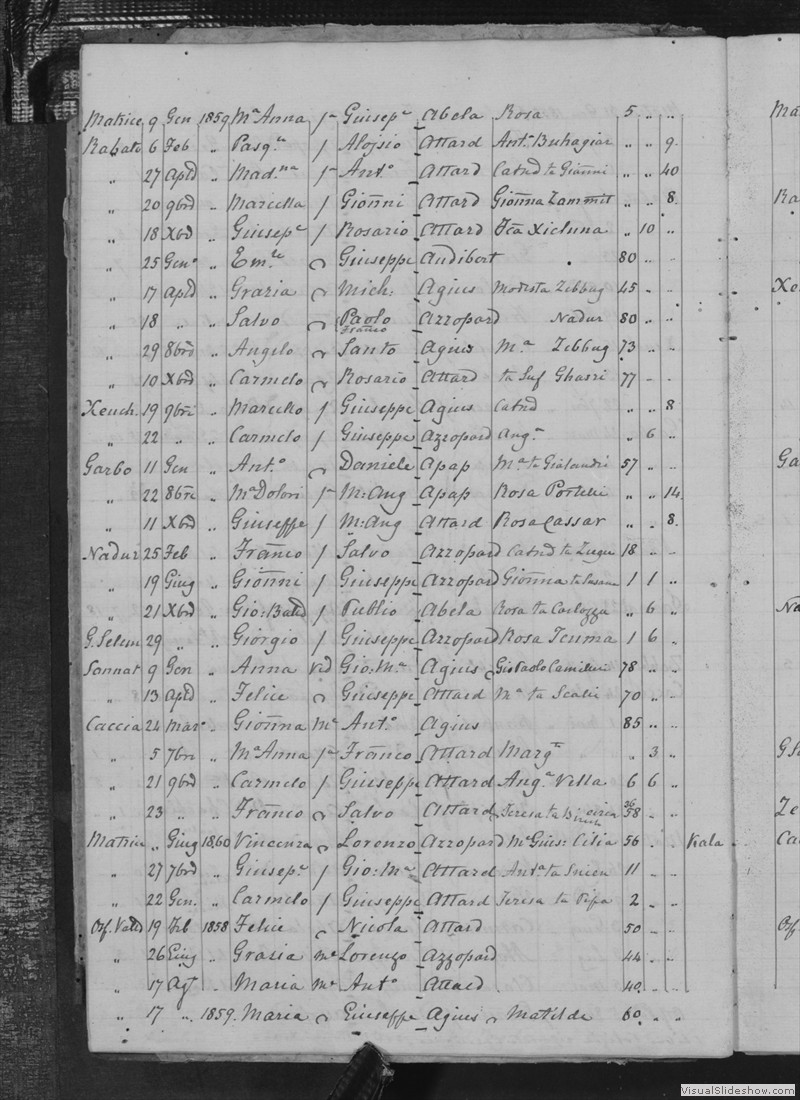 Matrice 9 Gen 1859 Mª Anna fª Giusepe Abela Rosa 5 " "
Rabato 6 Feb " Pasqle f Alojsio Attard Antª Buhagiar " " 9
" 27 Aple " Mad.na fª Anto Attard Catnd ta Gianni " " 40
" 20 9bre " Marcella f Gionni Attard Gionna Zammit " " 8
" 18 Xbre " Giusepe f Rosario Attard Fca Xicluna " 10 "
" 25 Geno " Emle Giuseppe Audibert 80 " "
" 17 Aple " Grazia Mich: Agius Modesta Zebbug 45 " "
" 18 " " Salvo Paolo Franco Azzopard Nadur 80 " "
" 29 8bre " Angelo Santo Agius Mª Zebbug 73 " "
" 10 Xbre " Carmelo Rosario Attard ta Suf Ghasri 77 " "
Xeuch. 19 9bre " Marcello f Giuseppe Agius Catnd " " 8
" 22 " " Carmelo f Giuseppe Azzopard Angª " 6 "
Garbo 11 Gen " Anto Daniele Apap Mª ta Gialandri 57 " "
" 22 8bre " Mª Dolori fª M: Ang Apap Rosa Portelli " " 14
" 11 Xbre " Giuseppe f M: Ang Attard Rosa Cassar " " 8
Nadur 25 Feb " Franco f Salvo Azzopard Catnd ta 18 " "
" 19 Giug " Gionni f Giuseppe Azzopard Gionna ta Susanna 1 1 "
" 21 Xbre " Gio: Batta f Publio Abela Rosa ta Carlozza " 6 "
G. Selem 29 " " Giorgio f Giuseppe Azzopard Rosa Teuma 1 6 "
Sannat 9 Gen " Anna vid Gio: Mª Agius Gio Paolo Camilleri 78 " "
" 13 Aple " Felice Giuseppe Attard Mª ta 70 " "
Caccia 24 Mar " Gionna me Anto Agius 85 " "
" 5 7bre " Mª Anna fª Franco Attard Margta " 3 "
" 21 9bre " Carmelo f Giuseppe Attard Angª Vella 6 6 "
" 23 " " Franco Salvo Attard Teresa ta 58 " "
Matrice " Giug 1860 Vincenza Lorenzo Azzopard Mª Gius: Cilia 56 " " Kala
" 27 7bre " Giusepe f Gio: Mª Attard Antª ta 11 " "
" 22 Gen. " Carmelo f Giuseppe Attard Teresa ta Pipa 2 " "
Osp. Vall 19 Feb 1858 Felice Nicola Attard 50 " "
" 26 Giug " Grazia me Lorenzo Azzopard 44 " "
" 17 Agt " Maria me Anto Attard 40 " "
" 17 " 1859 Maria Giuseppe Agius Matilde 60 " "
VisualSlideshow.com